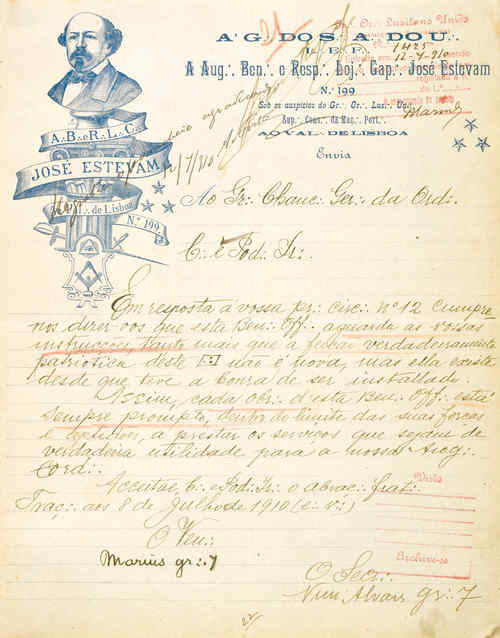 A∴ G∴ D∴ O∴ S∴ A∴ D∴ O∴ U∴
L∴ E∴ F∴
A Aug∴ Ben∴ e Resp∴ Loj∴ Cap∴ José Estevam
N.º 199
Sob os auspicios do Gr∴ Or∴ Lus∴ Un∴
Sup∴ Cons∴ da Maç∴ Port∴
AO VAL∴ DE LISBOA
Envia
Gr∴ Or∴ Lusitano Unido
1425
12-7-910
A∴B∴e R∴L∴C∴
JOSÉ ESTEVAM
de Lisboa
N.º 199
12/7/910
Ao Gr∴ Chanc∴ Ger∴ da Ord∴
C∴ e Pod∴ Ir∴
Em resposta á vossa pr∴ circ∴ nº 12 cumpre
nos dizer-vos que esta Ben∴ Off∴ aguarda as vossas
instrucções, tanto mais que a feição verdadeiramente
patriotica deste não é nova, mas ella existe
desde que teve a honra de ser installado.
Assim, cada Obr∴ d'esta Ben∴ Off∴ está
sempre prompto, dentro do limite das suas forças
e a prestar os serviços que sejam de
verdadeira utilidade para a nossa Aug∴
Ord∴
Acceitae, C∴ e Pod∴ Ir∴ o abraç∴ frat∴
Traç∴ aos 8 de Julho de 1910 (e∴ v∴)
O Ven∴
Marius gr∴ 7
Visto
Archive-se
O Secr∴
Nun'Alvares gr∴ 7